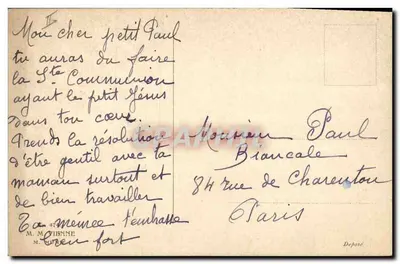 II
Mon cher petit Paul
tu auras du faire
la Ste Communion
ayant le petit Jésus
dans ton cœur.
Prends la résolution
d'être gentil avec ta
maman surtout et
de bien travailler
Ta mémée t'embrasse
bien fort
Monsieur Paul
Biancale
84 rue de Charenton
Paris
M. M. VIENNE
M.
Deposé